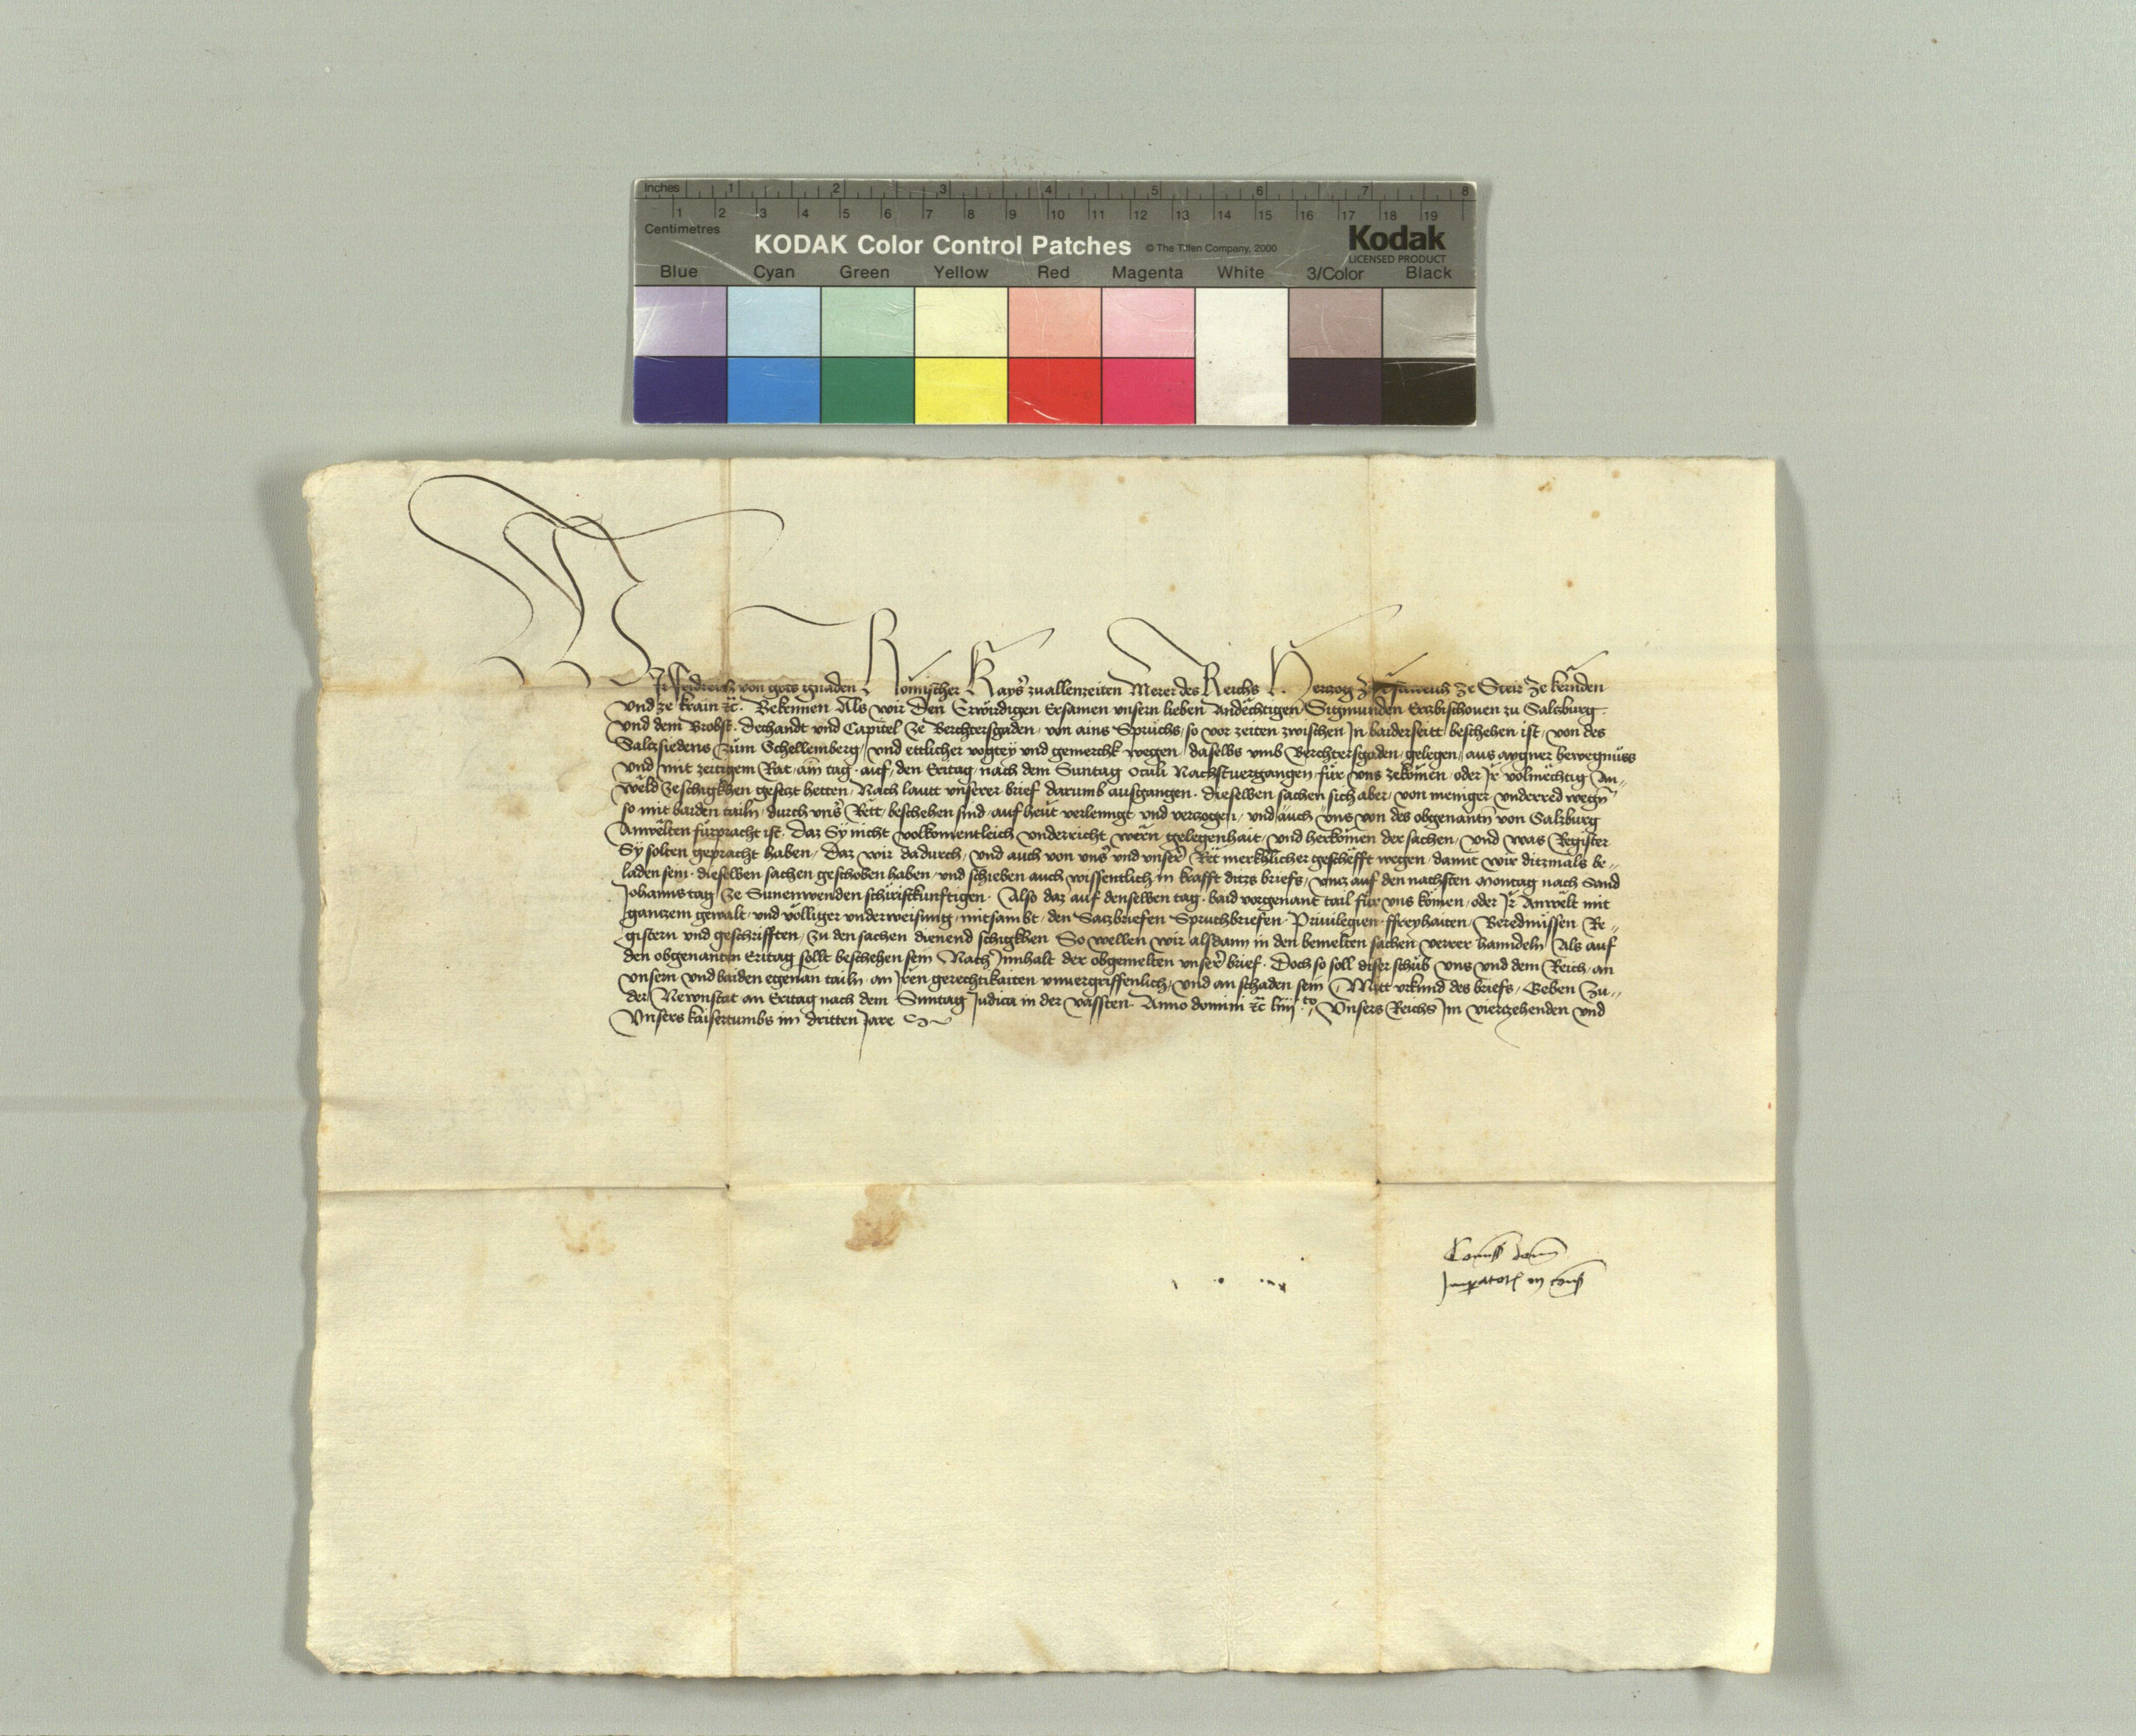 Inches 1 2 3 4 5 6 7 8
1 2 3 4 5 6 7 8 9 10 11 12 13 14 15 16 17 18 19
Centimetres
KODAK Color Control Patches © The Tiffen Company, 2000 Kodak
LICENSED PRODUCT
Blue Cyan Green Yellow Red Magenta White 3/Color Black
WIr Fridreich von gots gnaden Römischer Kayser zuallenzeiten Merer des Reichs Herzog ze Österreich ze Steir ze kernden
vnd ze krain etc. Bekennen Als wir den Erwirdigen Ersamen vnsern lieben Andechtigen Sigmunden Erzbischouen zu Salczburg
vnd dem Brobst. Dechandt vnd Capitel ze Berchtersgaden, von ains Spruchs, so vor zeiten zwischen In baiderseitt beschehen ist, von des
Salczsiedens zum Schellemberg, vnd ettlicher vogtey vnd gemerchk wegen, daselbs vmb Berchtersgaden, gelegen, aus aygner bewegnuss
vnd mit zeitigem Rat, ain tag, auf, den Eritag, nach dem Suntag Oculi Nachstuergangen, für vns zekömen, oder Ir volmechtig An„
weld zeschigkhen gesetzt hetten, Nach lautt vnserer brief darumb ausgangen. dieselben sachen sich aber, von meniger vnderred wegen
so mit baiden tailn, durch vnser Rett, beschehen sind, auf heut verlenngt vnd verzogen, vnd auch vns von des obgenantn von Salczburg
Anwelten fürpracht ist, daz Sy nicht volkomentleich vnderricht wern gelegenhait, vnd herkomen der sachen, vnd was Register
Sy solten gepracht haben, Daz wir dadurch, vnd auch von vnser vnd vnserer Ret merkhlicher geschefft wegen, damit wir ditzmals be„
laden sein. dieselben sachen geschoben haben, vnd schieben auch wissentlich in krafft ditzs briefs, vncz auf den nachsten Montag nach Sand
Johannstag ze Sunenwenden schiristkunftigen. Also daz auf denselben tag, baid vorgenant tail für vns kömen, oder Ir Anwelt mit
ganczem gewalt, vnd völliger vnderweisung, mitsambt, den Saczbriefen Spruchbriefen. Priuilegien. ffreyhaiten, Berednüssen Re„
gistern vnd geschrifften, zu den sachen dienend schigkhen So wellen wir alsdann in den bemelten sachen verrer hanndeln Als auf
den obgenanten Eritag sollt beschehen sein Nach Innhalt der obgemelten vnserer brief. Doch so soll diser schub vns vnd dem Reich, an
vnsern vnd baiden egenan tailn, an Iren gerechtikaiten vnuergriffenlich, vnd an schaden sein Mitt vrkund des briefs, Geben zu„
der Newnstat an Eritag nach dem Suntag Judica in der vassten. Anno domini etc liiij.to, Vnsers Reichs Im vierzehenden vnd
Vnsers kaisertumbs im dritten Jare
Comiss domi
Imperatoris in cons